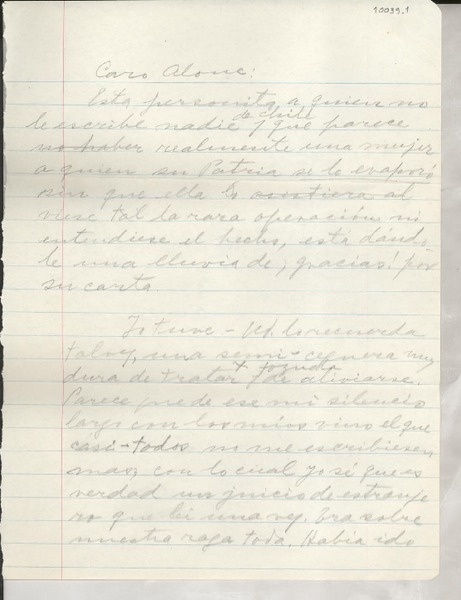 10039.1
Caro Alone:
Esta personita a quien no
le escribe nadie de Chile y que parece
no haber realmente una mujer
a quien su Patria se le evaporó
sin que ella lo sintiera al
viese tal la rara operación ni
entendiese el hecho, está dándo
le una lluvia de ¡gracias! por
su carta.
Yo tuve - Ud. lo recuerda
talvez, una semi-ceguera muy
dura de tratar y tozuda de aliviarse.
Parece que de ese mi silencio
largo con los míos vino el que
casi-todos no me escribiesen
mas, con lo cual yo sé que es
verdad un juicio de extranje
ro que leí una vez. Era sobre
nuestra raza toda. Había ido